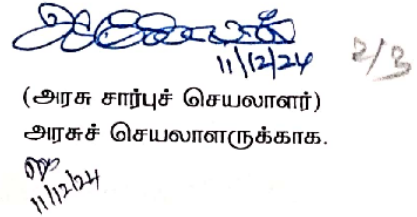 11/12/24
2/3
(அரசு சார்புச் செயலாளர்)
அரசுச் செயலாளருக்காக.
11/12/24